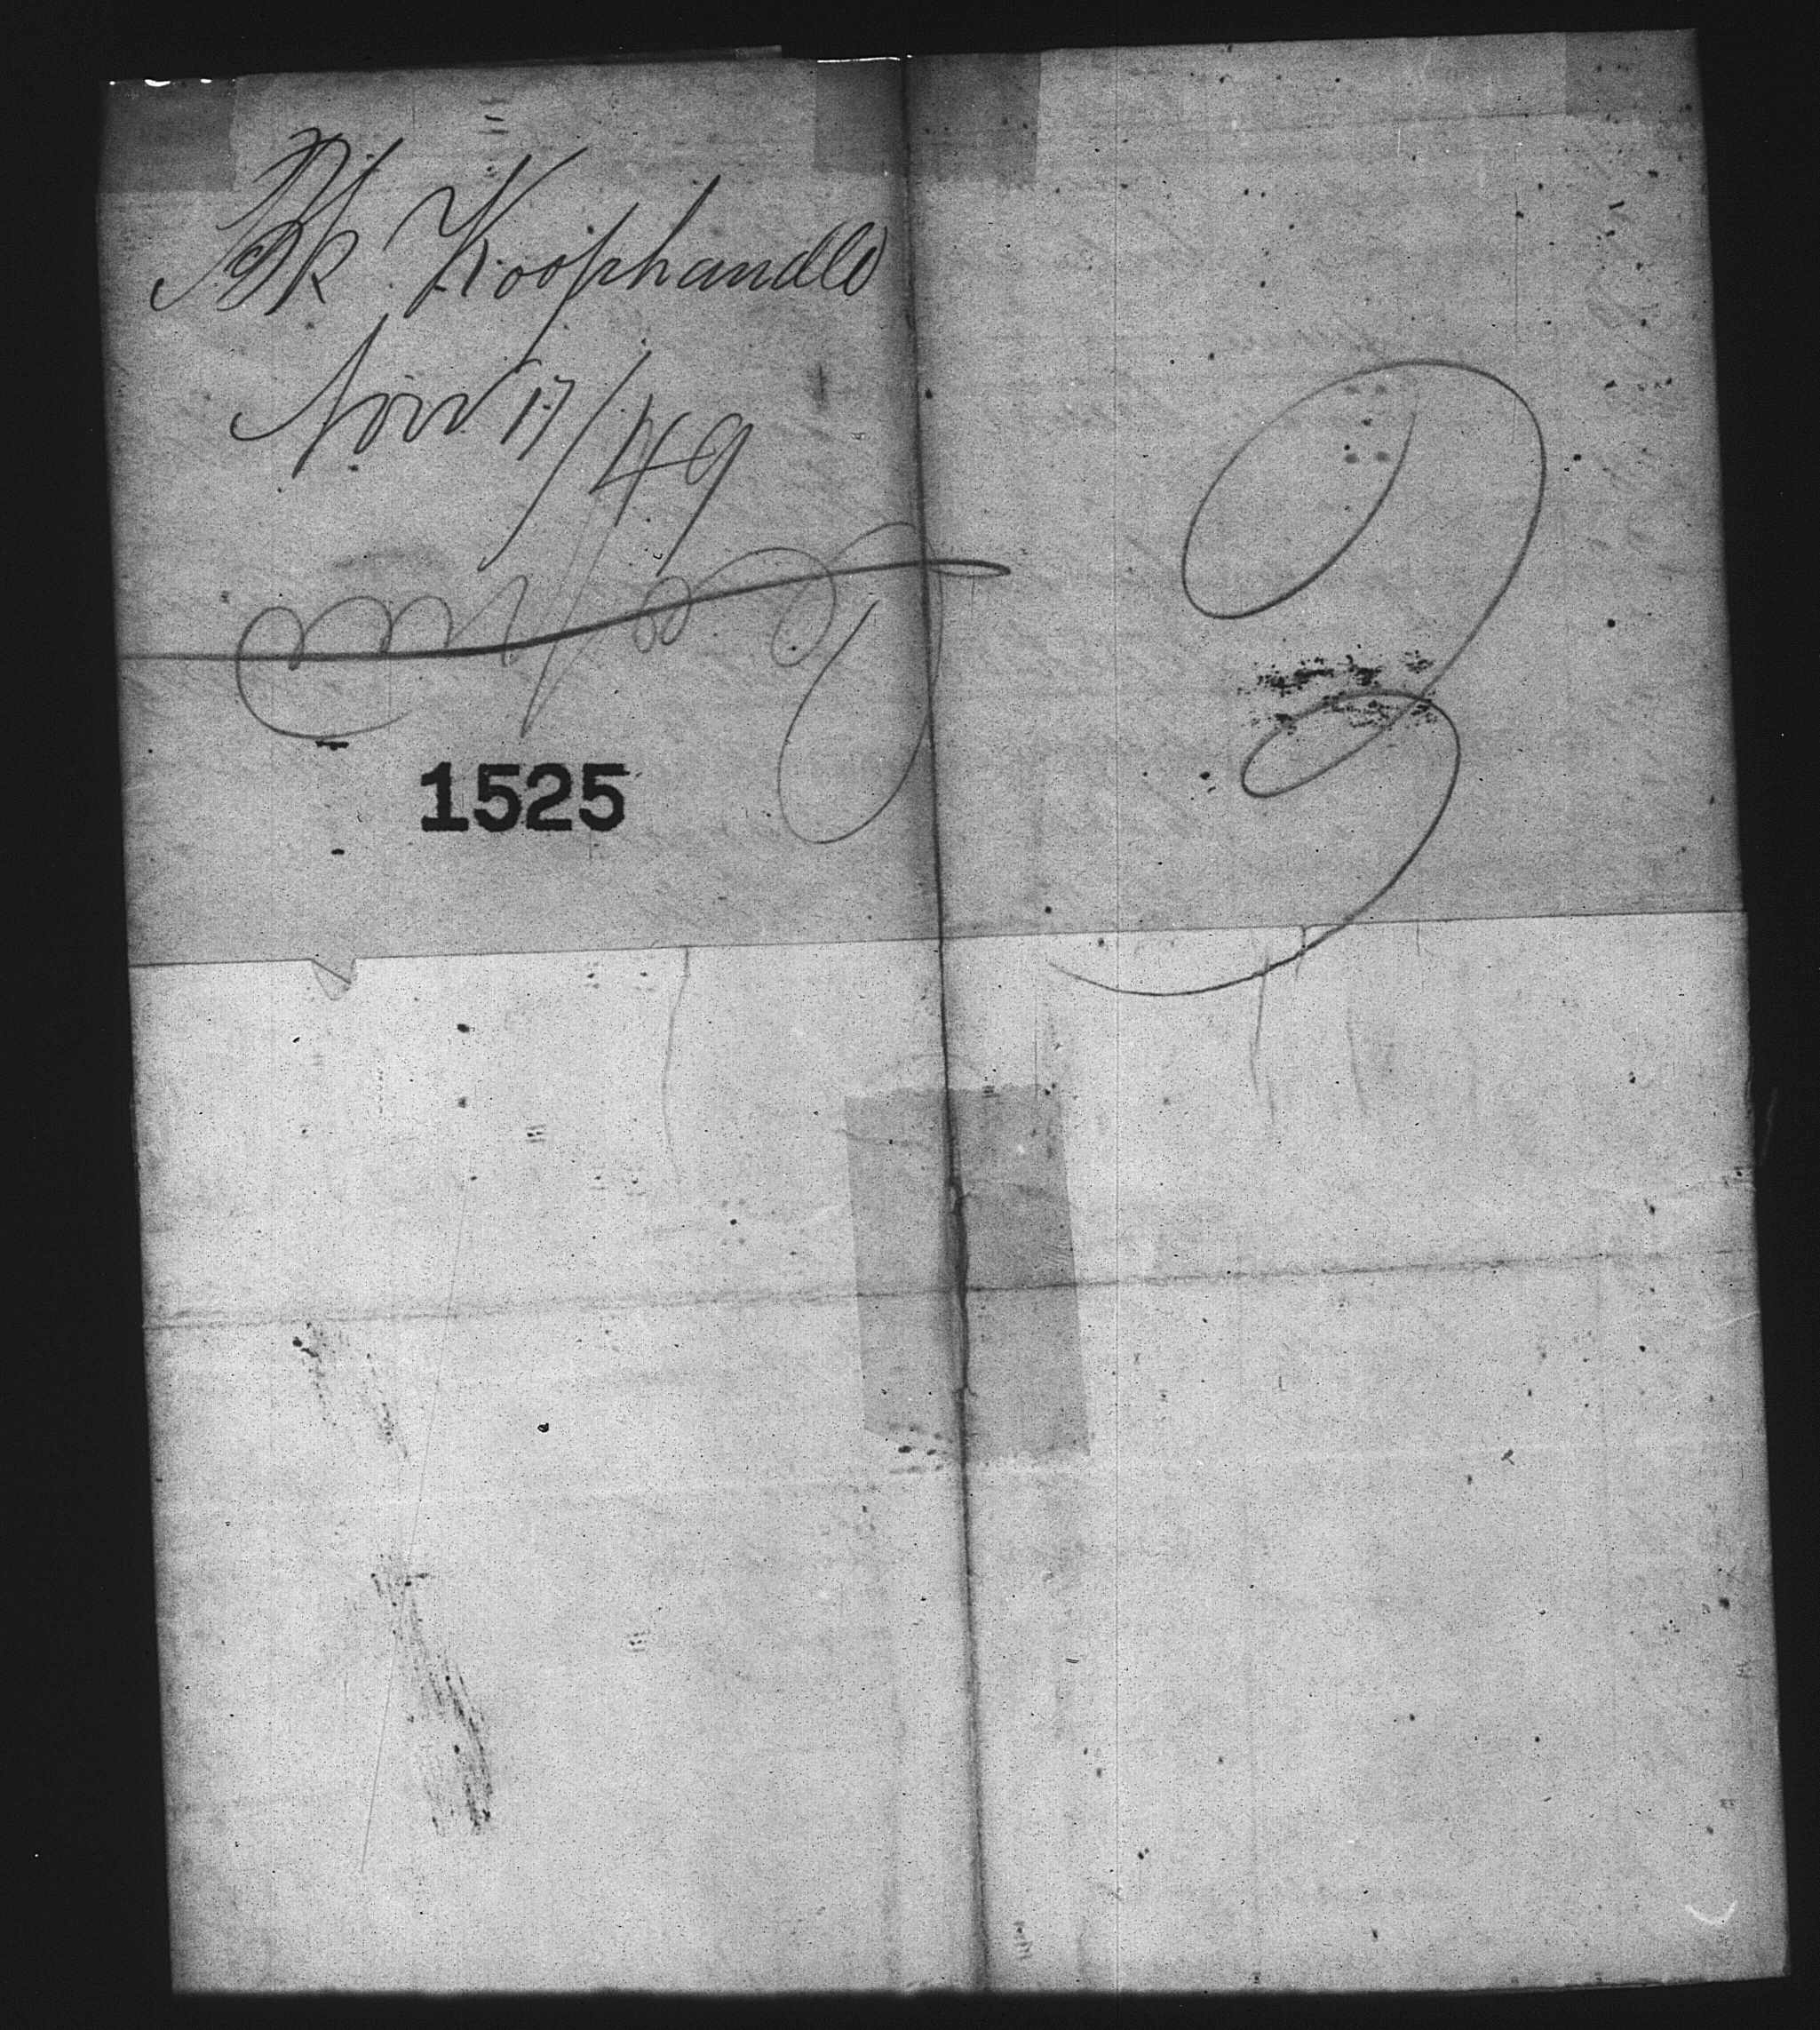 Bk Koophandel
Nov 17/49
1525